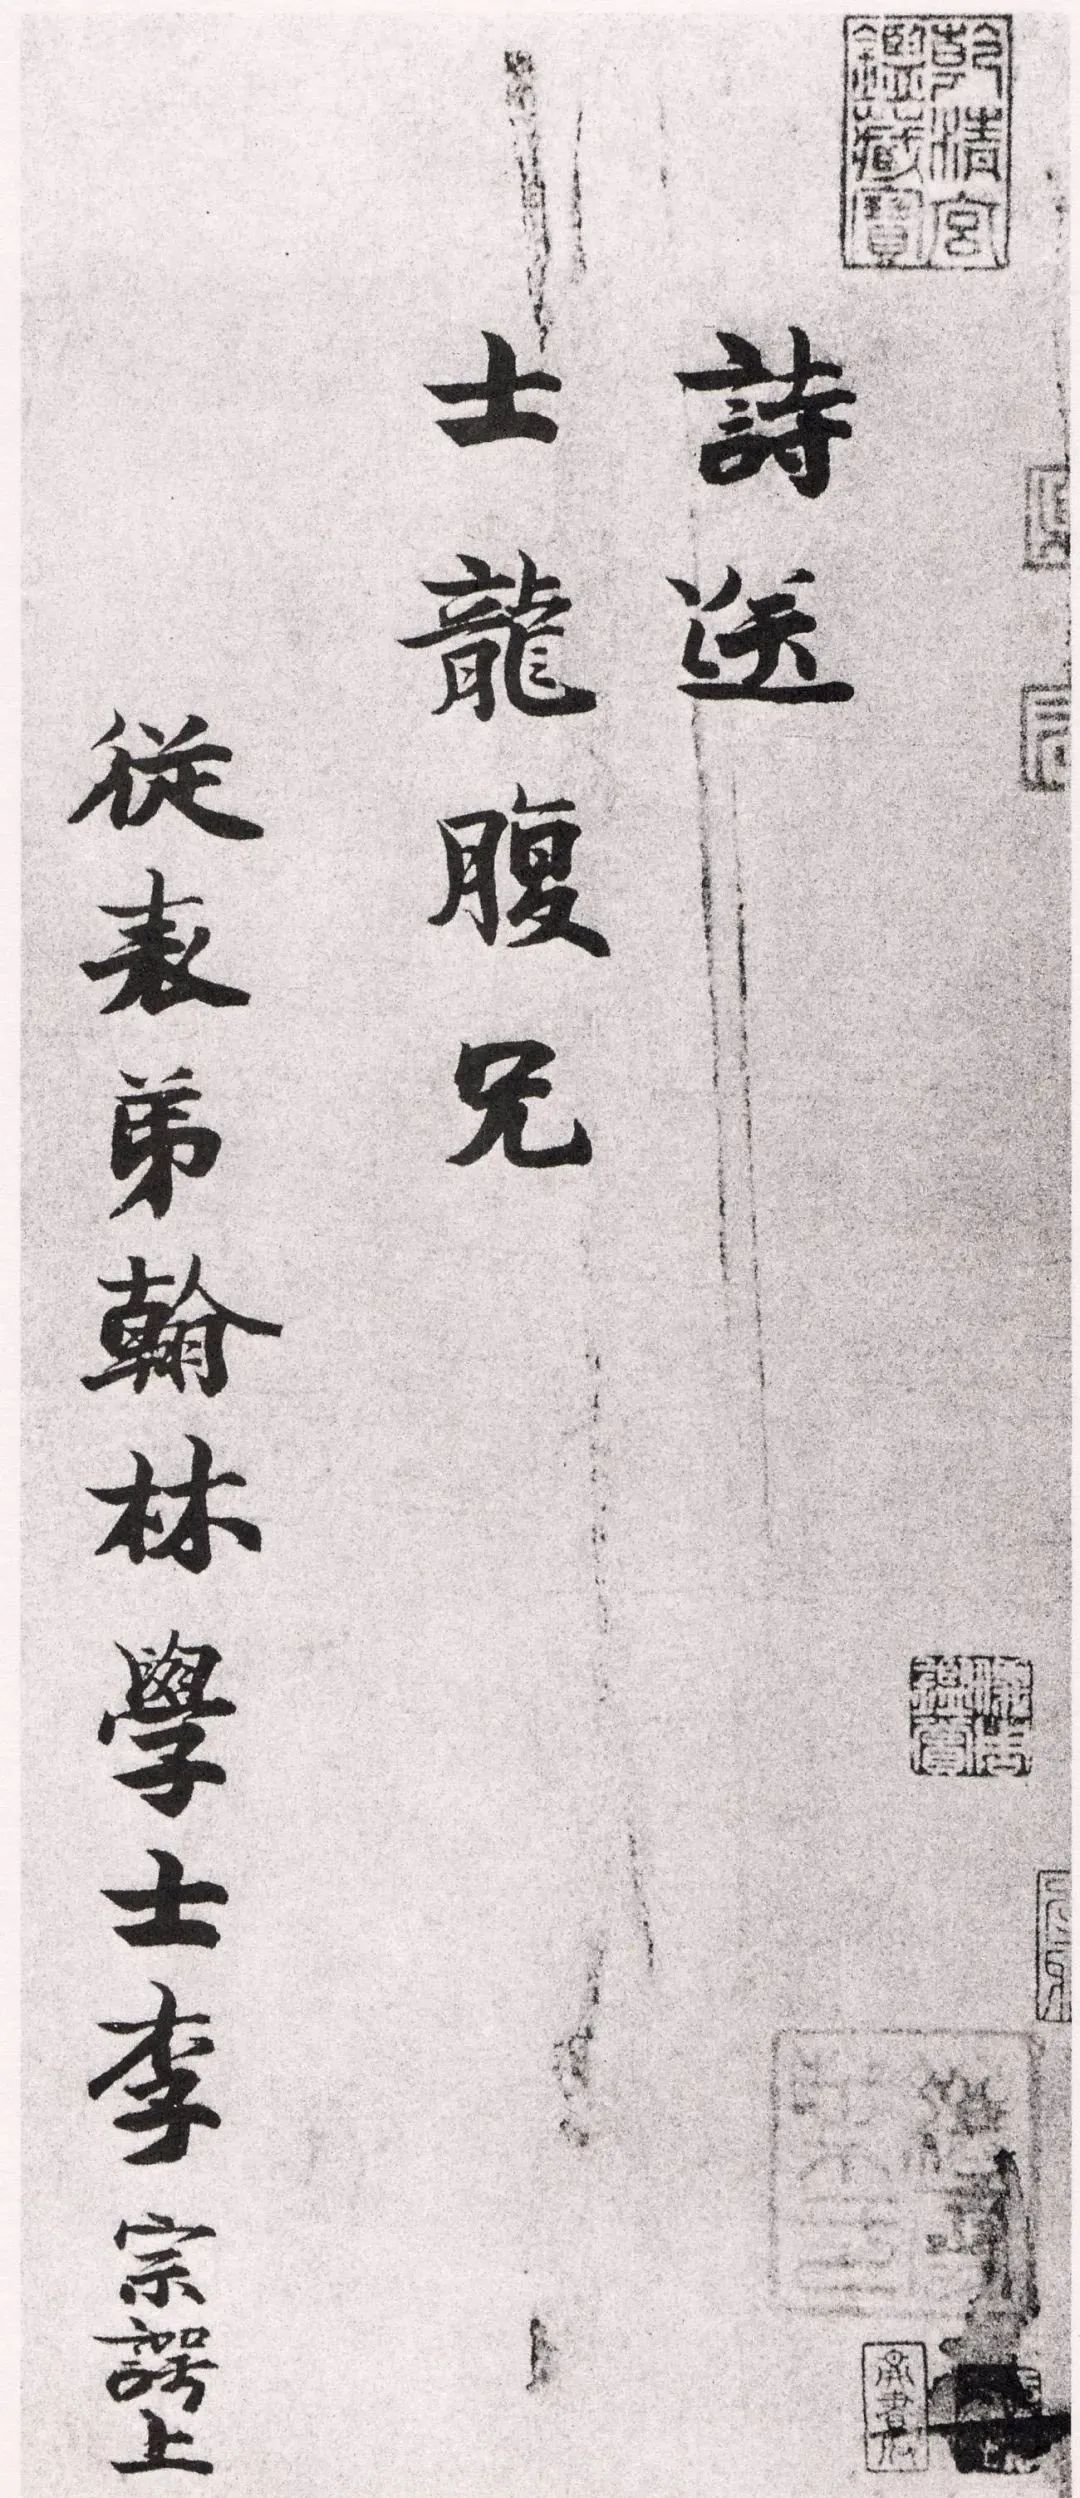 詩送
士龍腹兄
從表弟翰林學士李宗諤上
乾清宮
鑑藏寶